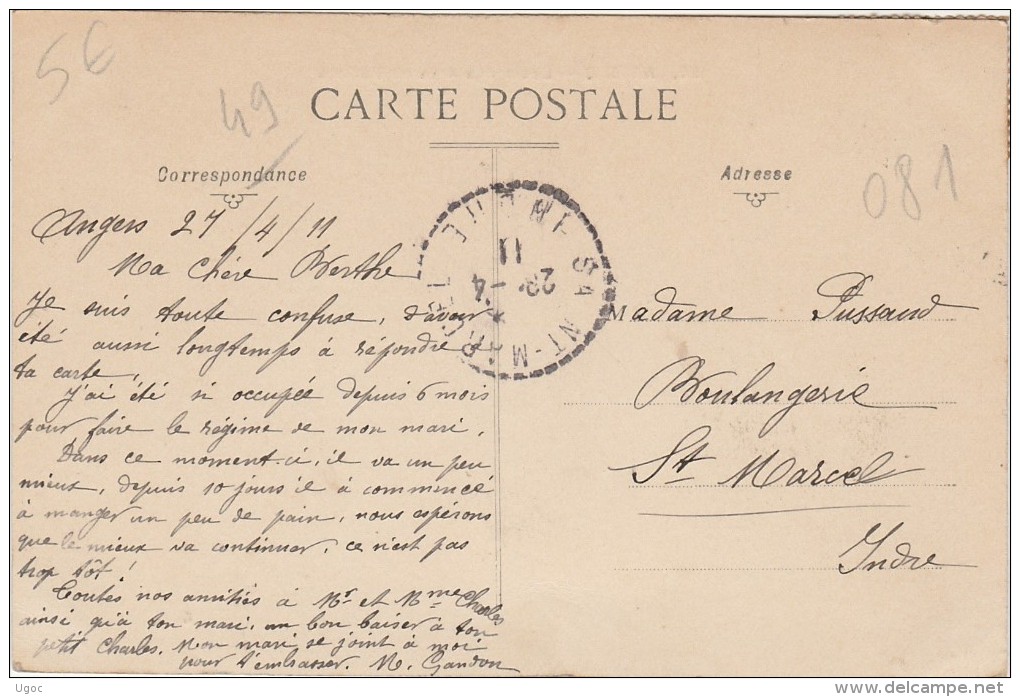 56
49
CARTE POSTALE
Correspondance
Adresse
081
Angers 27/4/11
Ma chère Berthe
Je suis toute confuse, d'avoir
été aussi longtemps à répondre à
ta carte.
J'ai été si occupée depuis 6 mois
pour faire le régime de mon mari.
Dans ce moment-ci, il va un peu
mieux, depuis 10 jours il à commencé
à manger un peu de pain, nous espérons
que le mieux va continuer, ce n'est pas
trop tôt !
Toutes nos amitiés à Mr et Mme Charles
ainsi qu'à ton mari, un bon baiser à ton
petit Charles. Mon mari se joint à moi
pour t'embrasser. M. Gandon
SAINT-MARCEL
INDRE
28-4
11
Madame Pussaud
Boulangerie
St Marcel
Indre
Ugoc
www.delcampe.net